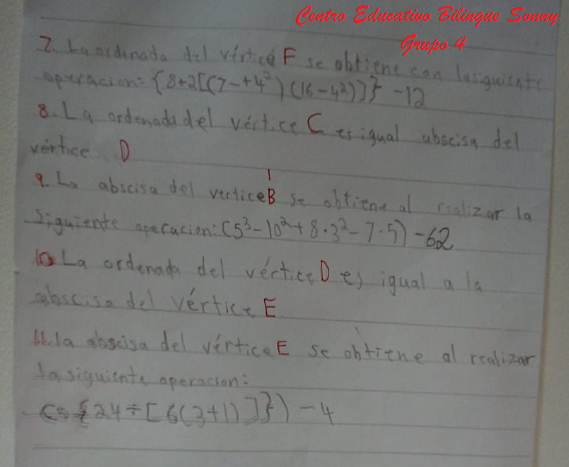 Centro Educativo Bilingue Sonny
Grupo 4
7. La ordenada del vértice F se obtiene con la siguiente
operacion: {8+2[(7-+4²)(16-4²)]} -12
8. La ordenada del vértice C es igual abscisa del
vértice D
9. La abscisa del vertice B se obtiene al realizar la
siguiente operacion: (5³-10²+8·3²-7·5) -62
10. La ordenada del vértice D es igual a la
abscisa del vértice E
11. la abscisa del vértice E se obtiene al realizar
la siguiente operacion:
{24÷[6(3+1)]}) -4